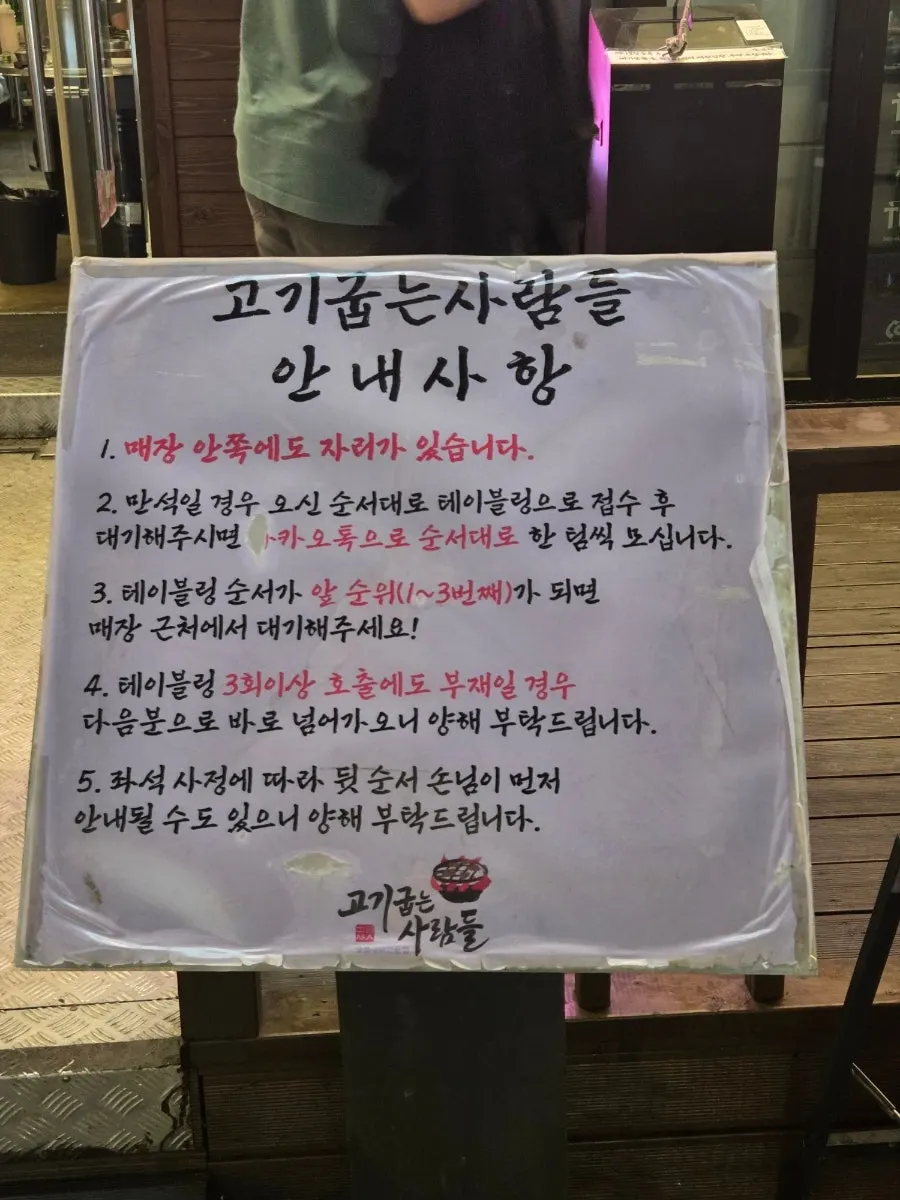 고기굽는사람들
안내사항
1. 매장 안쪽에도 자리가 있습니다.
2. 만석일 경우 오신 순서대로 테이블링으로 접수 후
대기해주시면 카카오톡으로 순서대로 한 팀씩 모십니다.
3. 테이블링 순서가 앞 순위(1~3번째)가 되면
매장 근처에서 대기해주세요!
4. 테이블링 3회이상 호출에도 부재일 경우
다음분으로 바로 넘어가오니 양해 부탁드립니다.
5. 좌석 사정에 따라 뒷 순서 손님이 먼저
안내될 수도 있으니 양해 부탁드립니다.
고기굽는
사람들